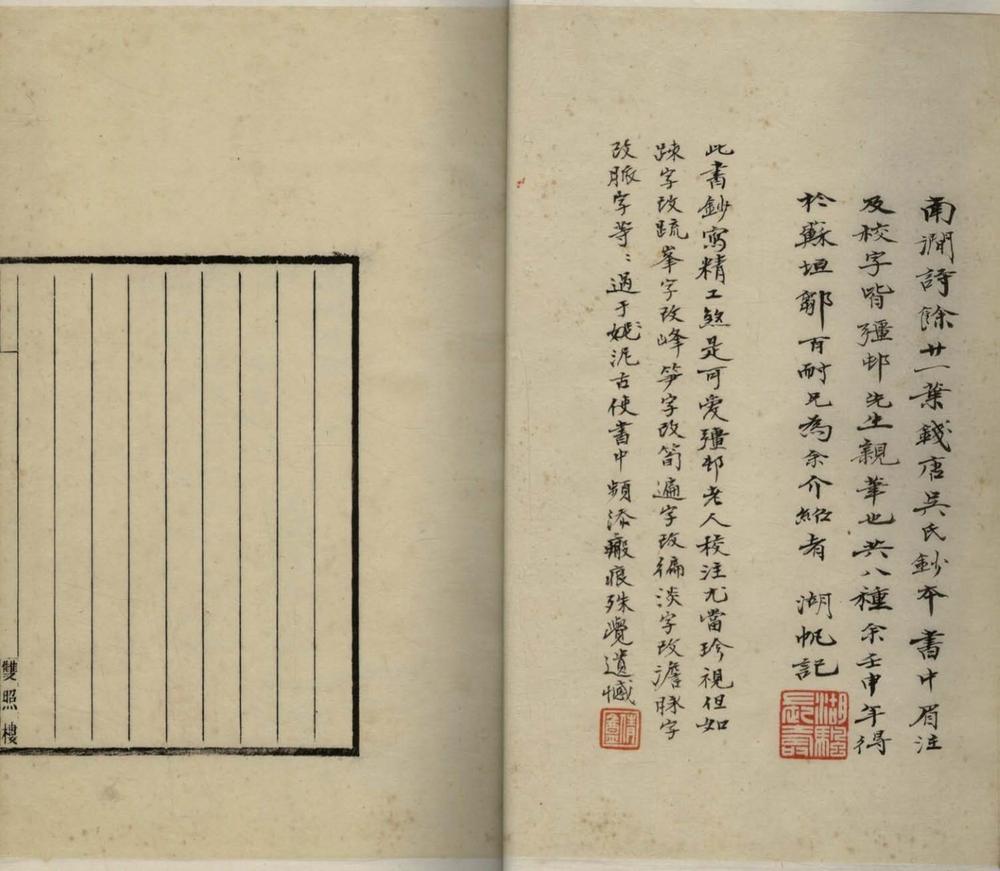 南澗詩餘廿一葉錢唐吳氏鈔本書中眉注
及校字皆彊邨先生親筆也共八種余壬申年得
於蘇垣鄒百耐兄為余介紹者 湖帆記
此書鈔寫精工煞是可愛彊邨老人校注尤當珍視但如
踈字改疏峯字改峰笋字改筍遍字改徧淡字改澹脉字
改脈字等:過于拘泥古使書中頻添瘢痕殊覺遺憾
雙照樓